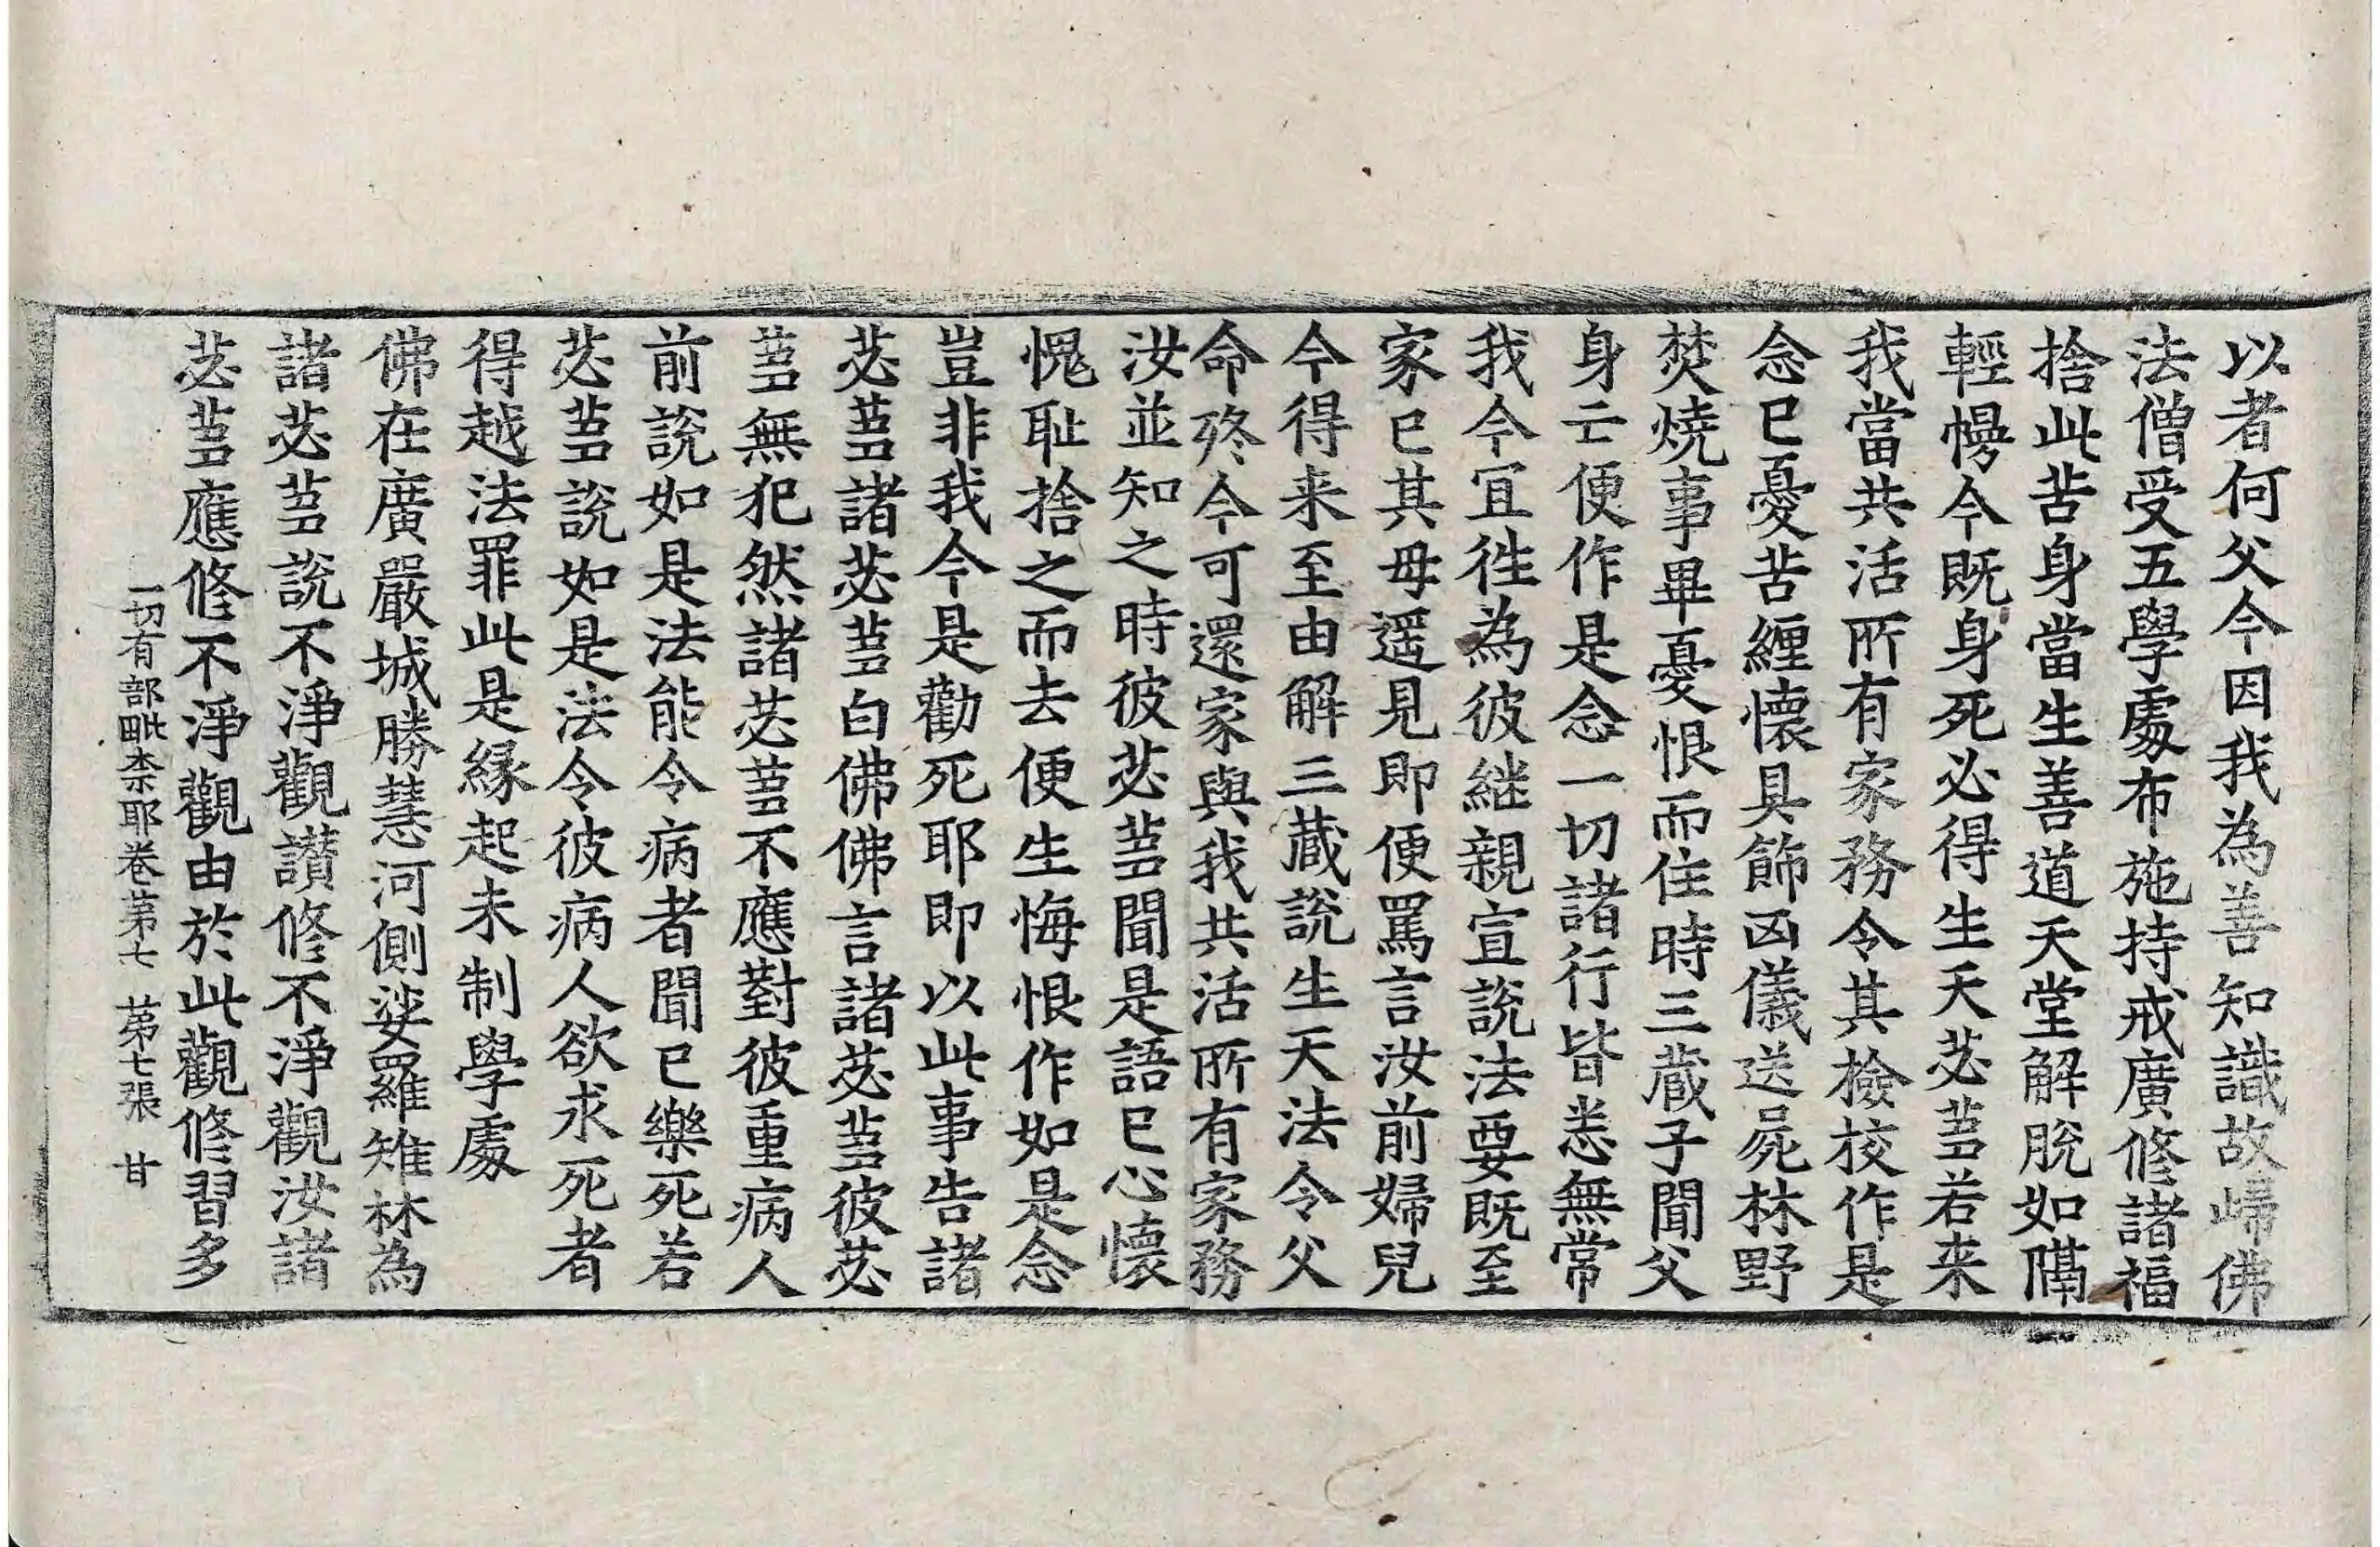 以者何父今因我為善知識故歸佛
法僧受五學處布施持戒廣修諸福
捨此苦身當生善道天堂解脫如隔
輕幔今既身死必得生天苾芻若来
我當共活所有家務令其撿校作是
念已憂苦纏懷具飾凶儀送屍林野
焚燒事畢憂恨而住時三藏子聞父
身亡便作是念一切諸行皆悉無常
我今宜往為彼継親宣說法要既至
家已其母遥見即便罵言汝前婦兒
今得来至由解三藏說生天法令父
命終今可還家與我共活所有家務
汝並知之時彼苾芻聞是語已心懷
愧恥捨之而去便生悔恨作如是念
豈非我今是勸死耶即以此事告諸
苾芻諸苾芻白佛佛言諸苾芻彼苾
芻無犯然諸苾芻不應對彼重病人
前說如是法能令病者聞已樂死若
苾芻說如是法令彼病人欲求死者
得越法罪此是緣起未制學處
佛在廣嚴城勝慧河側娑羅雉林為
諸苾芻說不淨觀讃修不淨觀汝諸
苾芻應修不淨觀由於此觀修習多
一切有部毗柰耶卷第七　第七張　甘